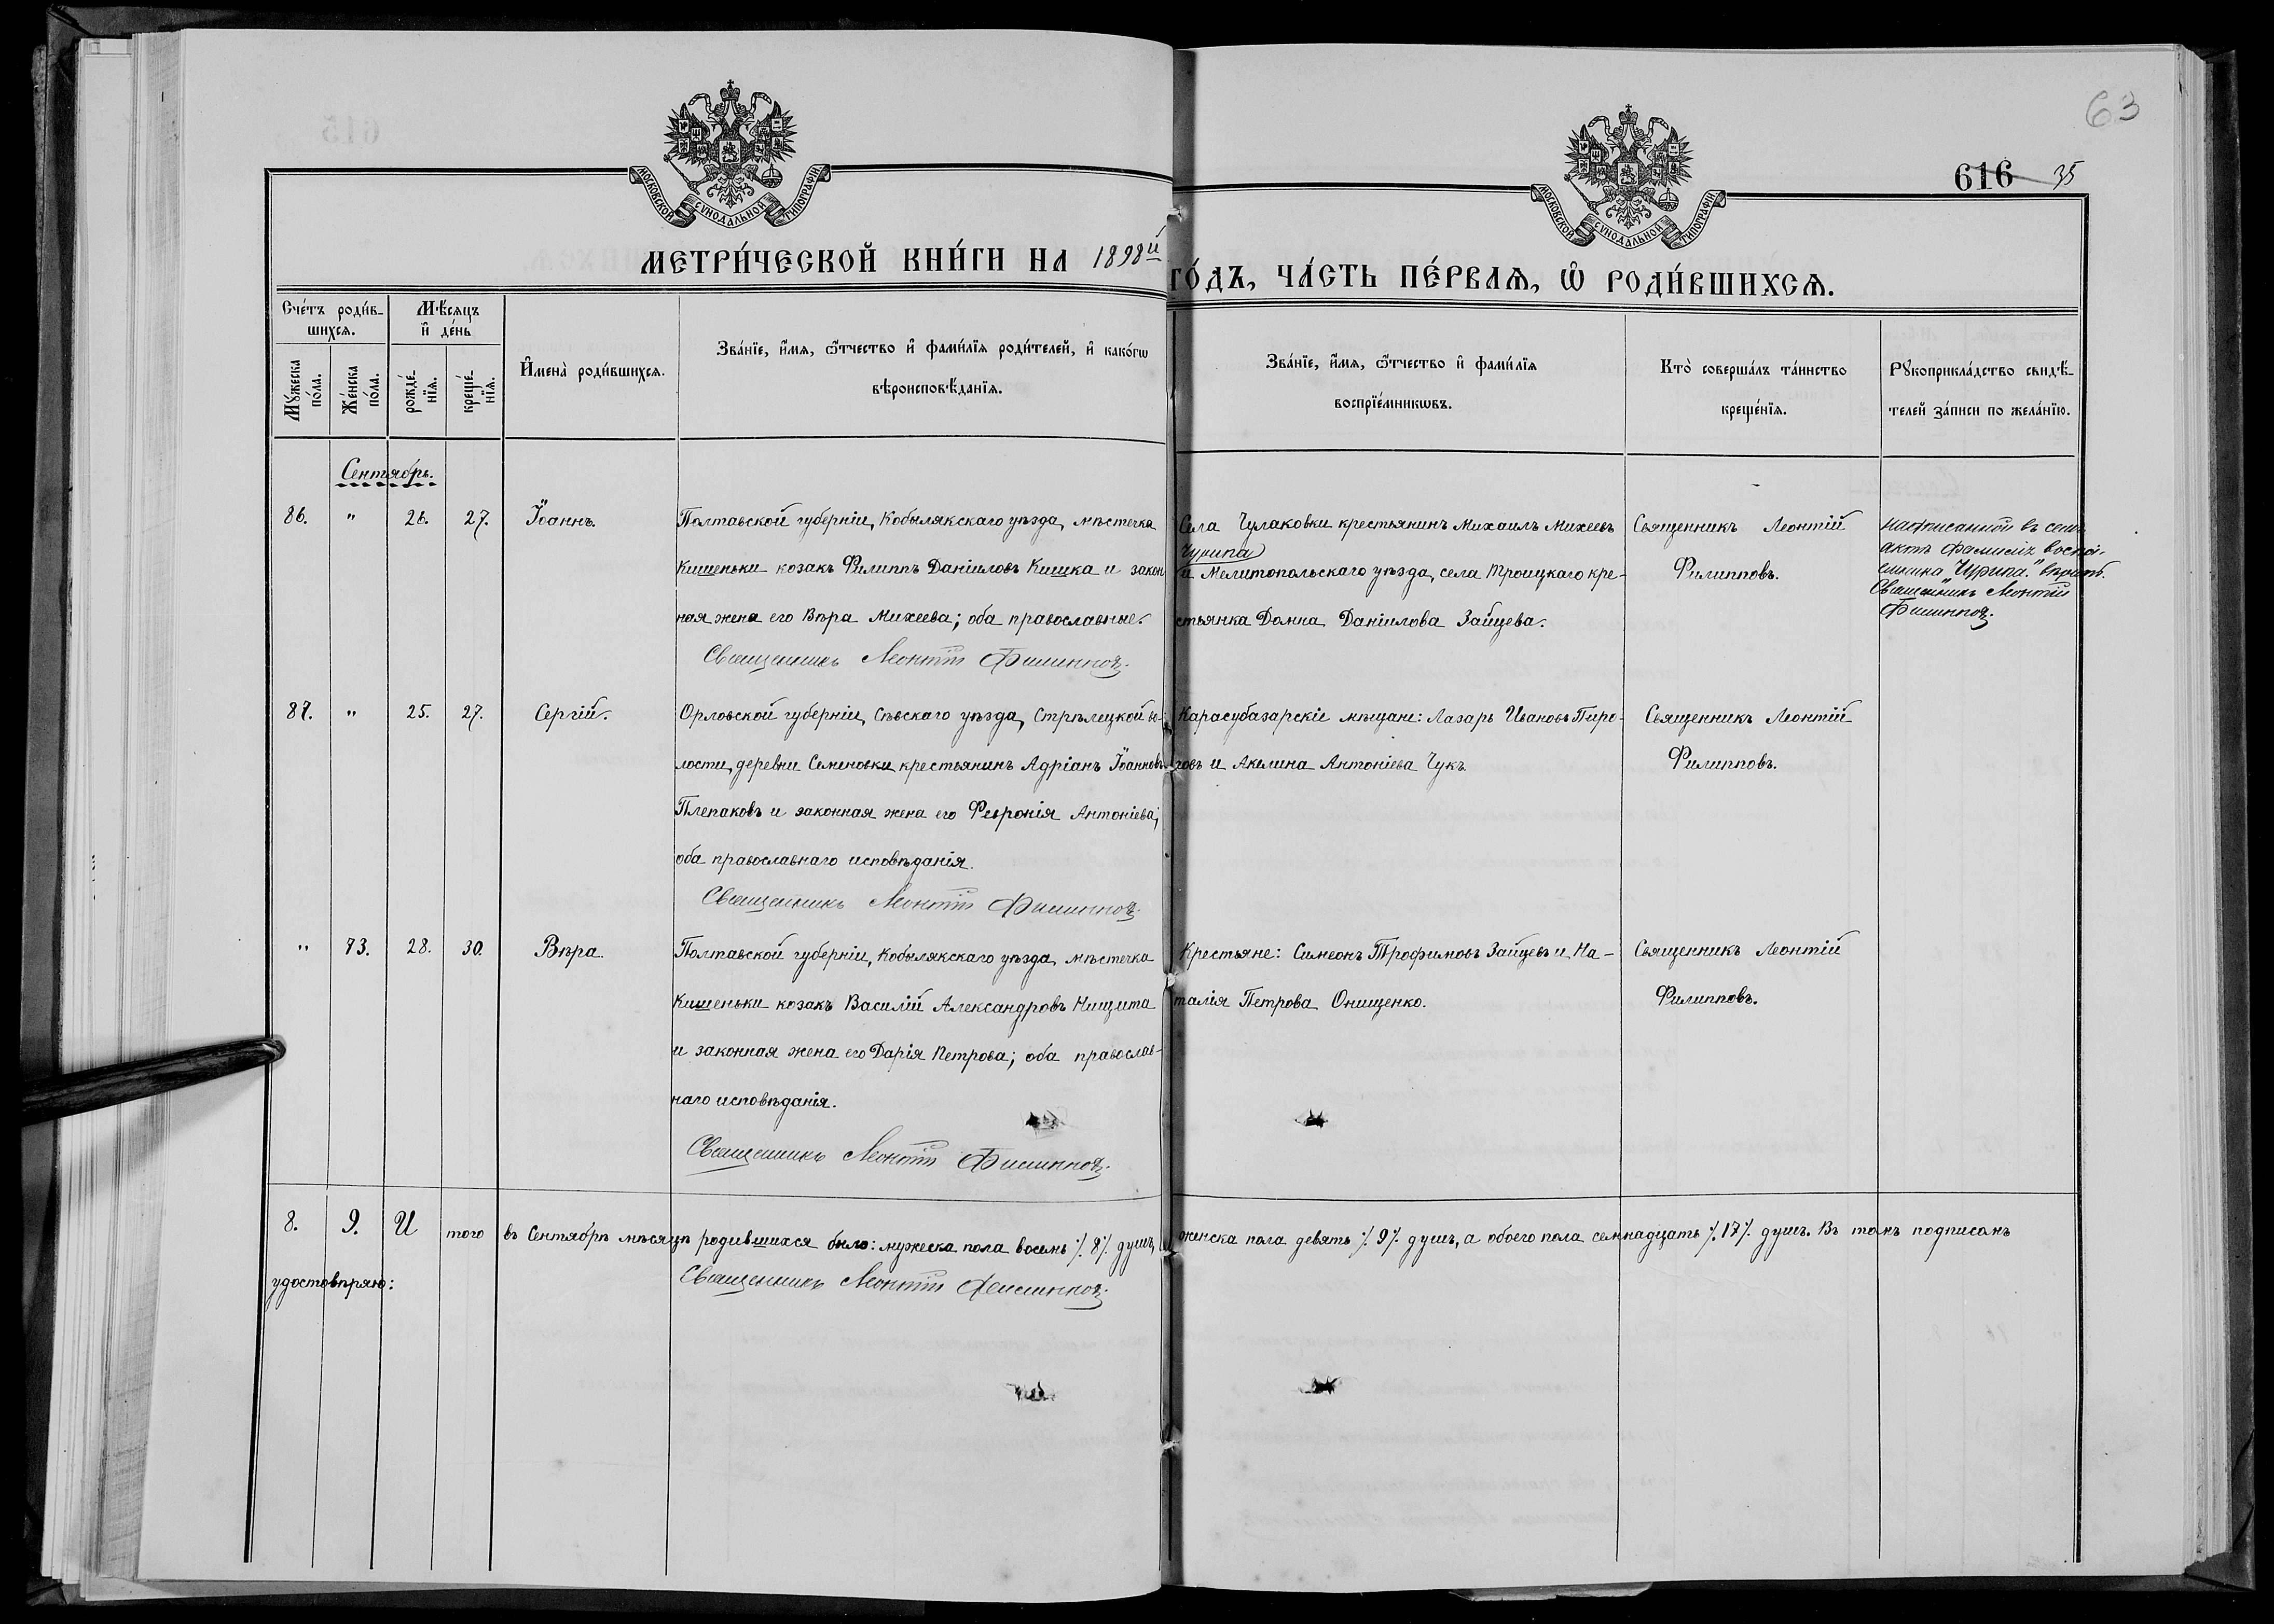 63
616 35
МОСКОВСКОЙ СУНОДАЛЬНОЙ ТИПОГРАФІИ.
МОСКОВСКОЙ СУНОДАЛЬНОЙ ТИПОГРАФІИ.
МЕТРИ́ЧЕСКОЙ КНИ́ГИ НА 1898й
ГО́ДЪ, ЧА́СТЬ ПЕ́РВАѦ, Ѡ РОДИ́ВШИХСѦ.
Сче́тъ роди́в-
шихсѧ.
Мѣ́сѧцъ
и҆ де́нь
Мꙋ́жеска
по́ла.
Же́нска
по́ла.
рожде́-
нїѧ.
креще́-
нїѧ.
И҆мена̀ роди́вшихсѧ.
Зва́нїе, и҆́мѧ, ѻ҆́тчество и҆ фами́лїѧ роди́телей, и҆ како́гѡ
вѣроисповѣ́данїѧ.
Зва́нїе, и҆́мѧ, ѻ҆́тчество и҆ фами́лїѧ
воспрїе́мникѡвъ.
Кто̀ соверша́лъ та́инство
креще́нїѧ.
Рꙋкоприкла́дство свидѣ́-
телей за́писи по жела́нїю.
Сентябрь.
86. " 26. 27. Іоаннъ.
Полтавской губерніи, Кобылякскаго уѣзда, мѣстечка
Кишеньки козакъ Филиппъ Даніиловъ Кишка и закон
ная жена его Вѣра Михеева; оба православные.
Священникъ Леонтій Филипповъ.
Села Чулаковки крестьянинъ Михаилъ Михеевъ
Чурипа
и Мелитопольскаго уѣзда, села Троицкаго кре-
стьянка Домна Даніилова Зайцева.
Священникъ Леонтій
Филипповъ.
Надписанной въ семъ
актѣ фамиліи воспрі-
емника "Чурипа." вѣрить.
Священникъ Леонтій
Филипповъ.
87. " 25. 27. Сергій.
Орловской губерніи, Сѣвскаго уѣзда, Стрѣлецкой во-
лости, деревни Семеновки крестьянинъ Адріанъ Іоанновъ
Плепаковъ и законная жена его Февронія Антоніева;
оба православнаго исповѣданія.
Священникъ Леонтій Филипповъ.
Карасубазарскіе мѣщане: Лазарь Ивановъ Пиро-
говъ и Акелина Антоніева Чукъ
Священникъ Леонтій
Филипповъ.
" 73. 28. 30. Вѣра.
Полтавской губерніи, Кобылякскаго уѣзда, мѣстечка
Кишеньки козакъ Василій Александровъ Нищита
и законная жена его Дарія Петрова; оба православ-
наго исповѣданія.
Священникъ Леонтій Филипповъ.
Крестьяне: Симеонъ Трофимовъ Зайцевъ и На-
талія Петрова Онищенко.
Священникъ Леонтій
Филипповъ.
8. 9. Итого въ Сентябрѣ мѣсяцѣ родившихся было: мужеска пола восемь ٪ 8 ٪ душъ, женска пола девять ٪ 9 ٪ душъ, а обоего пола семнадцать ٪ 17 ٪ душъ. Въ томъ подписомъ
удостовѣряю:
Священникъ Леонтій Филипповъ.